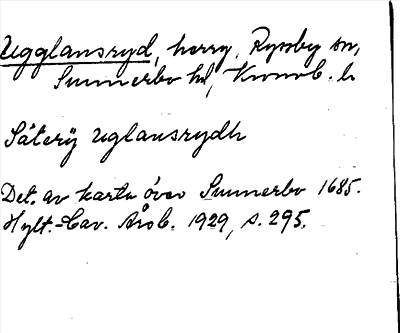 Ugglansryd, herrg, Ryssby sn,
Sunnerbo hd, Kronob. l.
Säterÿ Uglansrydh
Det. av karta över Sunnerbo 1685.
Hylt.-Cav. Årsb. 1929, s. 295.